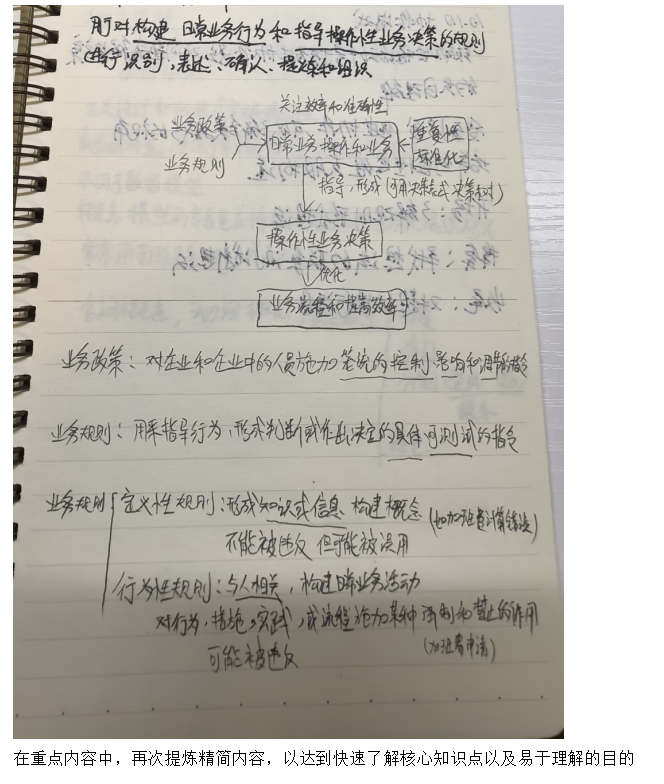 用对构建 日常业务行为和指导操作性业务决策的规则
进行识别,表述、确认、提炼和组织
关注效率和准确性
业务政策
业务规则
日常业务操作和业务
重复性
标准化
指导,形成(可用决策表或决策树)
操作性业务决策
优化
业务流程和提高效率
业务政策:对企业和企业中的人员施加笼统的控制、影响和调节的指令
业务规则:用来指导行为,形成判断或作出决定的具体可测试的指令
业务规则
定义性规则:形成知识或信息 构建概念(如加班费计算错误)
不能被违反 但可能被误用
行为性规则:与人相关,构建日常业务活动
对行为,措施,实践,或流程施加某种 强制和禁止的作用
可能被违反
(加班费申请)
在重点内容中,再次提炼精简内容,以达到快速了解核心知识点以及易于理解的目的